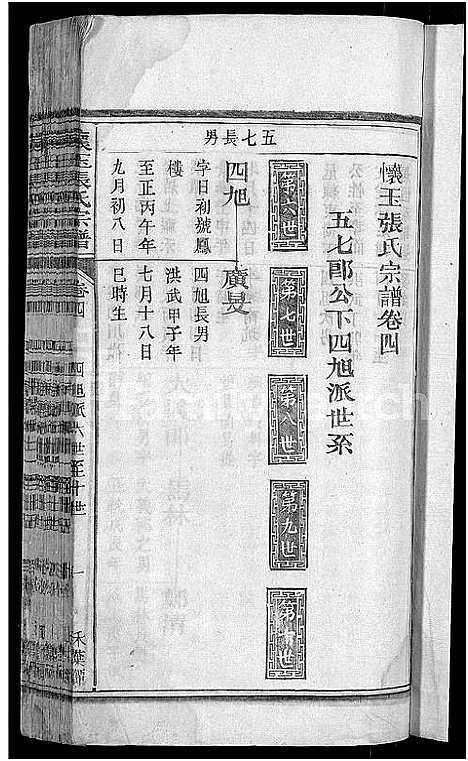 懷玉張氏宗譜卷四
五七郎公下四旭派世系
第六世
第七世
第八世
第九世
第十世
五七長男
四旭
字日初號鳳
樓
至正丙午年
九月初八日
廣旻
四旭長男
洪武甲子年
七月十八日
巳時生
懷玉張氏宗譜
卷四
四旭派六世至十世
一